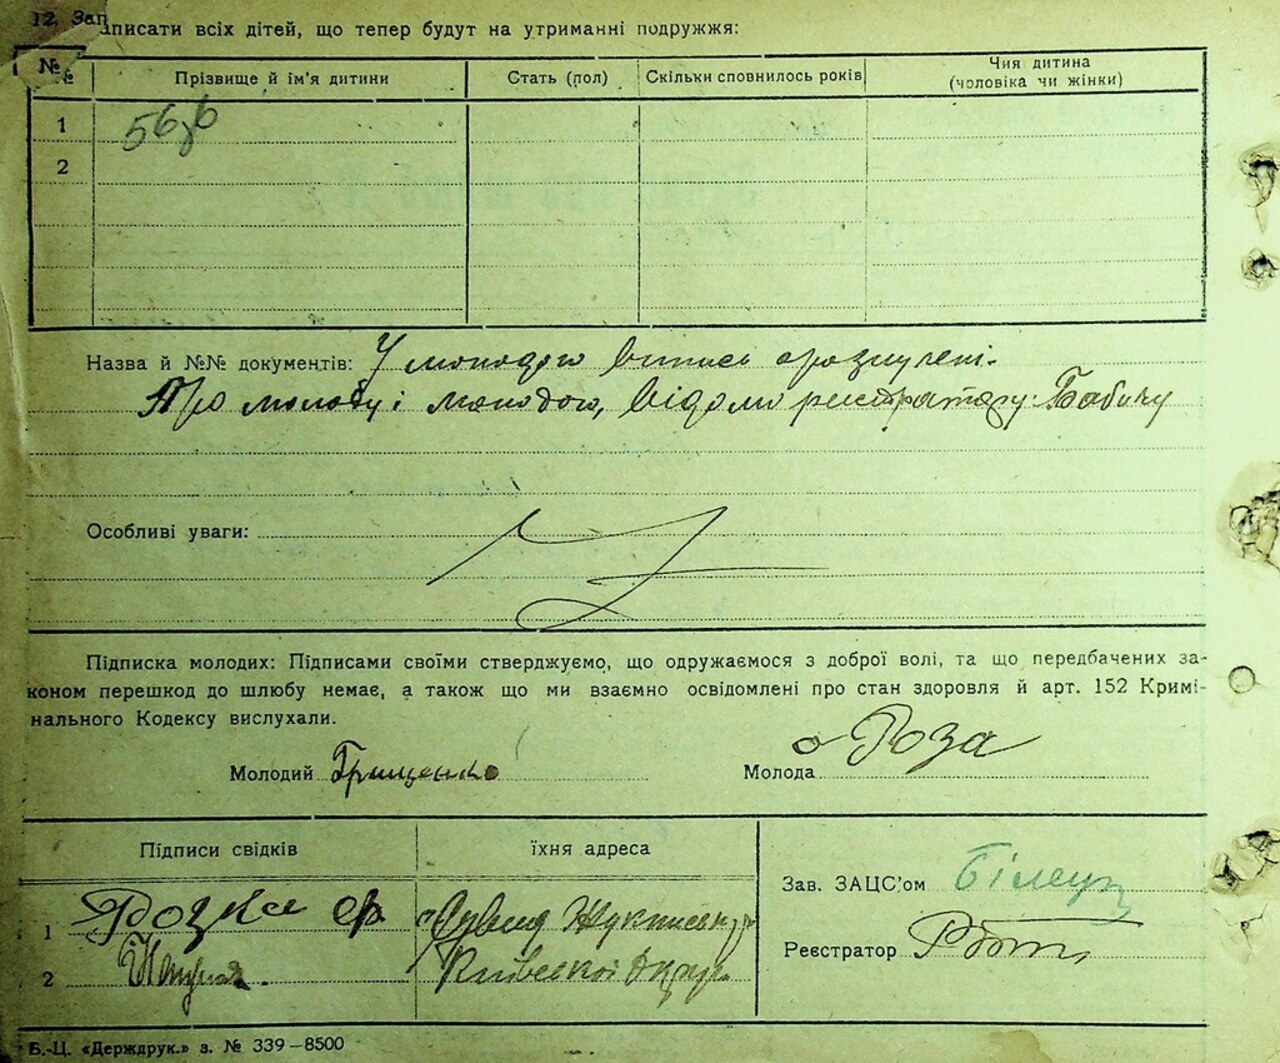 12. Зап
аписати всіх дітей, що тепер будут на утриманні подружжя:
№№ Прізвище й ім'я дитини Стать (пол) Скільки сповнилось років Чия дитина (чоловіка чи жінки)
1
2
Назва й №№ документів: У молодого витись о розлучені.
Про молоду і молодого, відомо реєстратору: Бабичу
Особливі уваги:
Підписка молодих: Підписами своїми стверджуємо, що одружаємося з доброї волі, та що передбачених за-
коном перешкод до шлюбу немає, а також що ми взаємно освідомлені про стан здоровля й арт. 152 Кримі-
нального Кодексу вислухали.
Молодий Грищенко Молода Роза
Підписи свідків їхня адреса
Зав. ЗАЦС'ом Білец
1
Реєстратор
2 Київської
Б.-Ц. «Держдрук.» з. № 339—8500